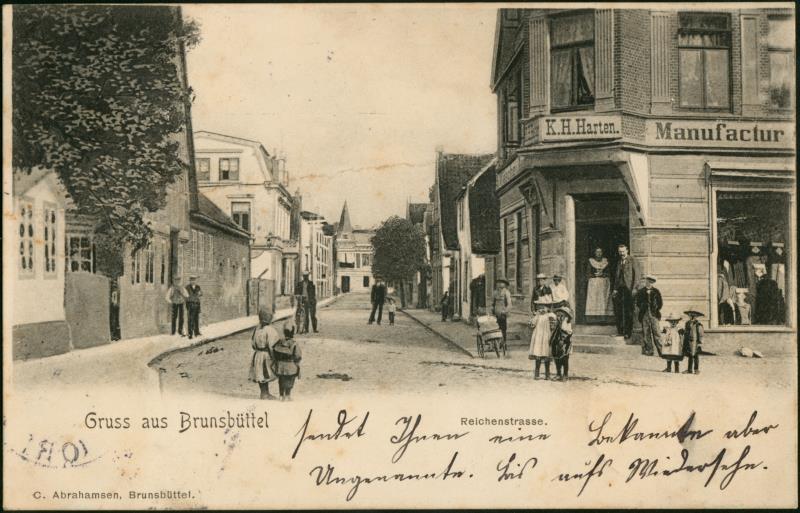 K.H.Harten.
Manufactur
Gruss aus Brunsbüttel
Reichenstrasse.
sendet Ihnen eine Bekannte aber
Ungenannte. Bis aufs Wiedersehn.
C. Abrahamsen, Brunsbüttel.